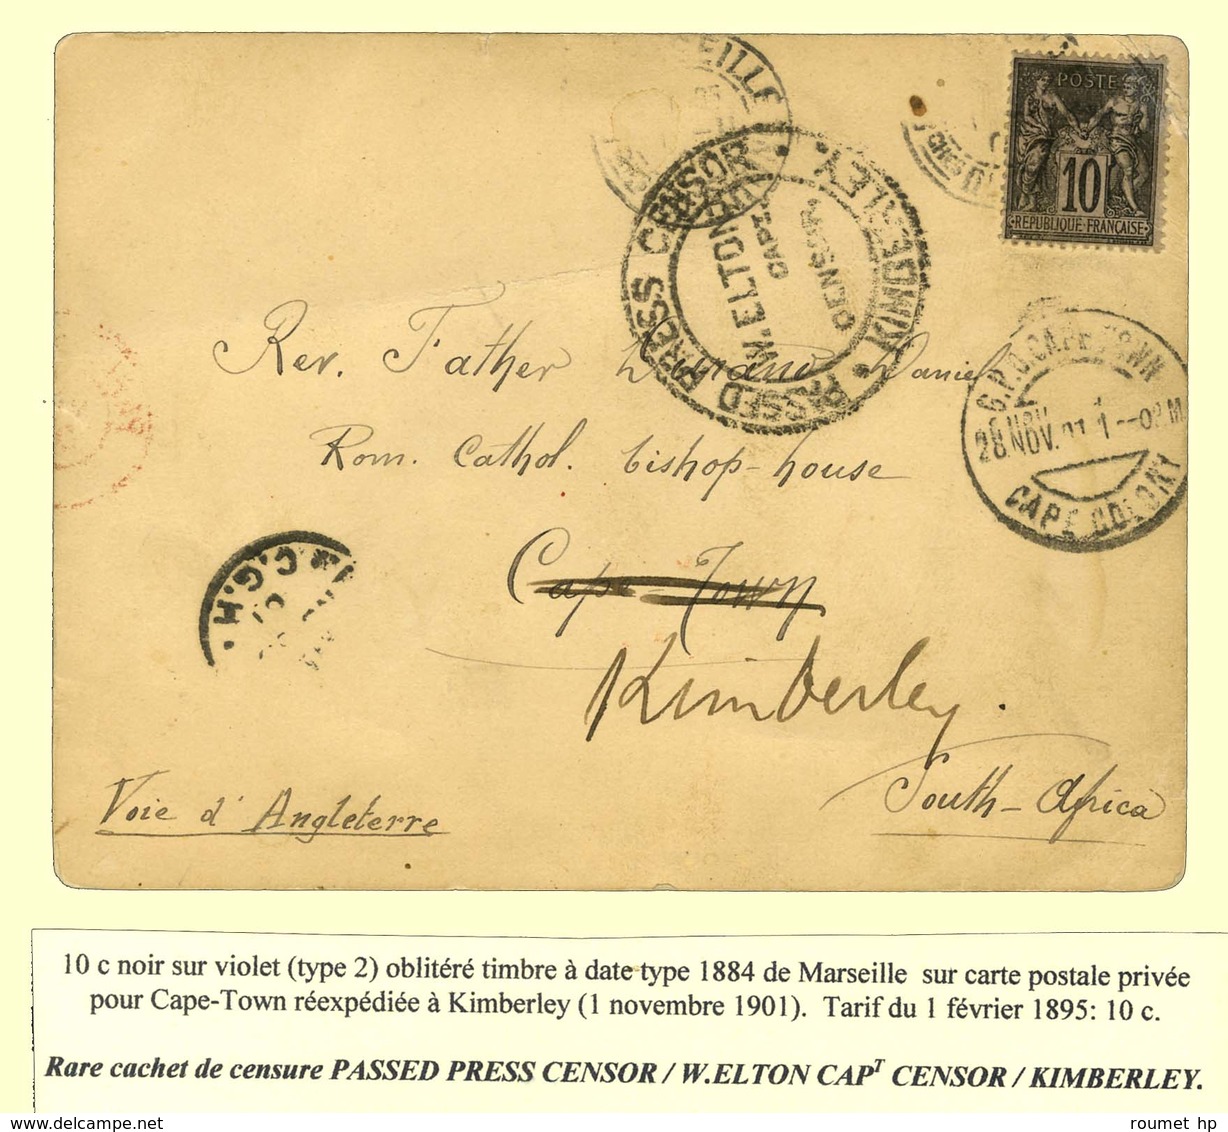 POSTE
10
REPUBLIQUE FRANÇAISE
PASSED PRESS CENSOR
W. ELTON
CAPT.
CENSOR.
KIMBERLEY.
G.P.O. CAPE TOWN
28 NOV. 01 1--0PM
CAPE COLONY
Rev. Father Daniel
Rom. Cathol. bishop-house
Cape Town
Kimberley.
South-Africa
Voie d'Angleterre
C.G.H.
10 c noir sur violet (type 2) oblitéré timbre à date type 1884 de Marseille sur carte postale privée
pour Cape-Town réexpédiée à Kimberley (1 novembre 1901). Tarif du 1 février 1895: 10 c.
Rare cachet de censure PASSED PRESS CENSOR / W.ELTON CAPT CENSOR / KIMBERLEY.
roumet hp